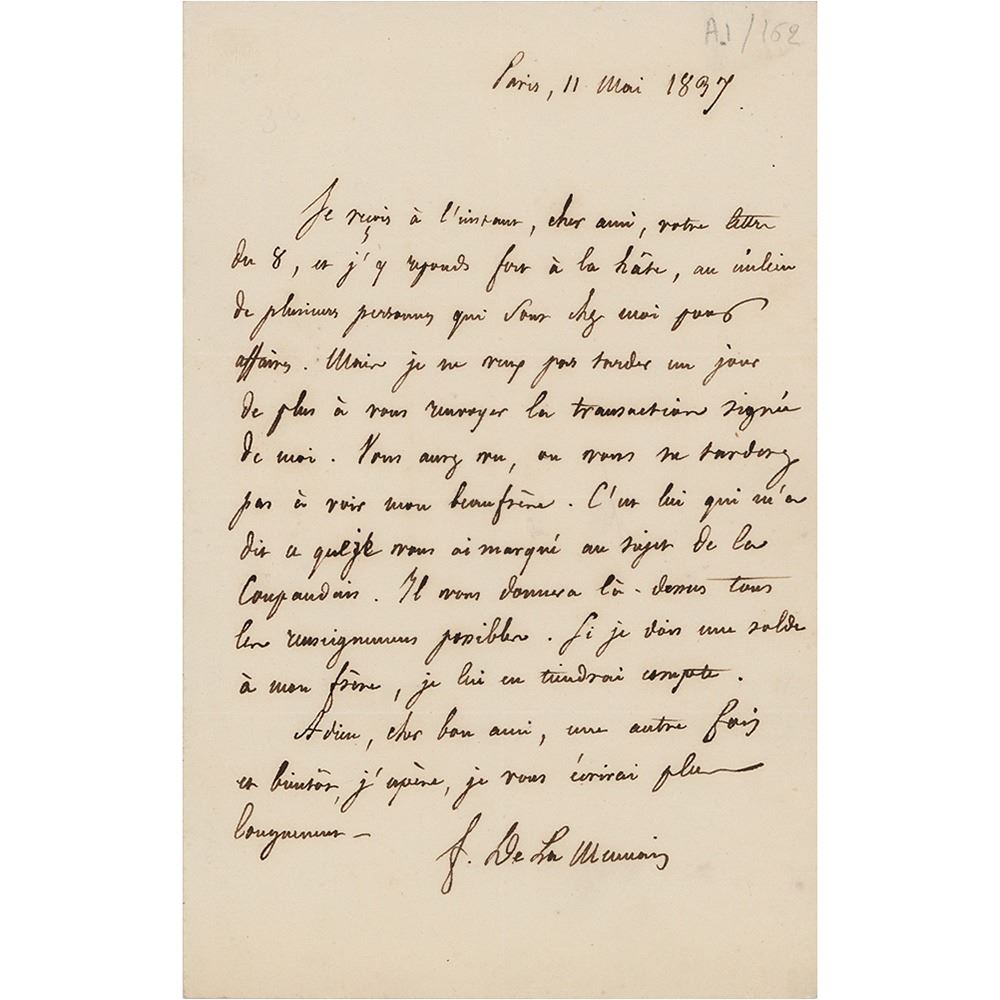 A.I/162
Paris, 11 Mai 1837.
Je reçois à l'instant, cher ami, votre lettre
du 8, et j'y réponds fort à la hâte, au milieu
de plusieurs personnes qui sont chez moi pour
affaires. Mais je ne veux pas tarder un jour
de plus à vous renvoyer la transaction signée
de moi. Vous aurez vu, ou vous ne tarderez
pas à voir mon beaufrère. C'est lui qui m'a
dit ce que je vous ai marqué au sujet de la
Coupaudais. Il vous donnera là-dessus tous
les renseignemens possibles. Si je dois une solde
à mon frère, je lui en tiendrai compte.
Adieu, cher bon ami, une autre fois
et bientôt, j'espère, je vous écrirai plus
longuement —
F. De La Mennais